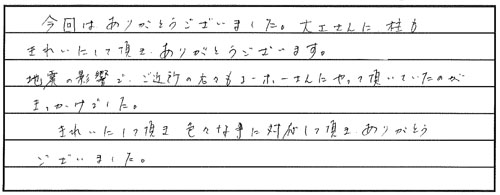 今回はありがとうございました。大工さんに柱も
きれいにして頂き、ありがとうございます。
地震の影響で、ご近所の方々もユーホーさんにやって頂いていたのが
きっかけでした。
きれいにして頂き 色々な事に対応して頂き、ありがとう
ございました。